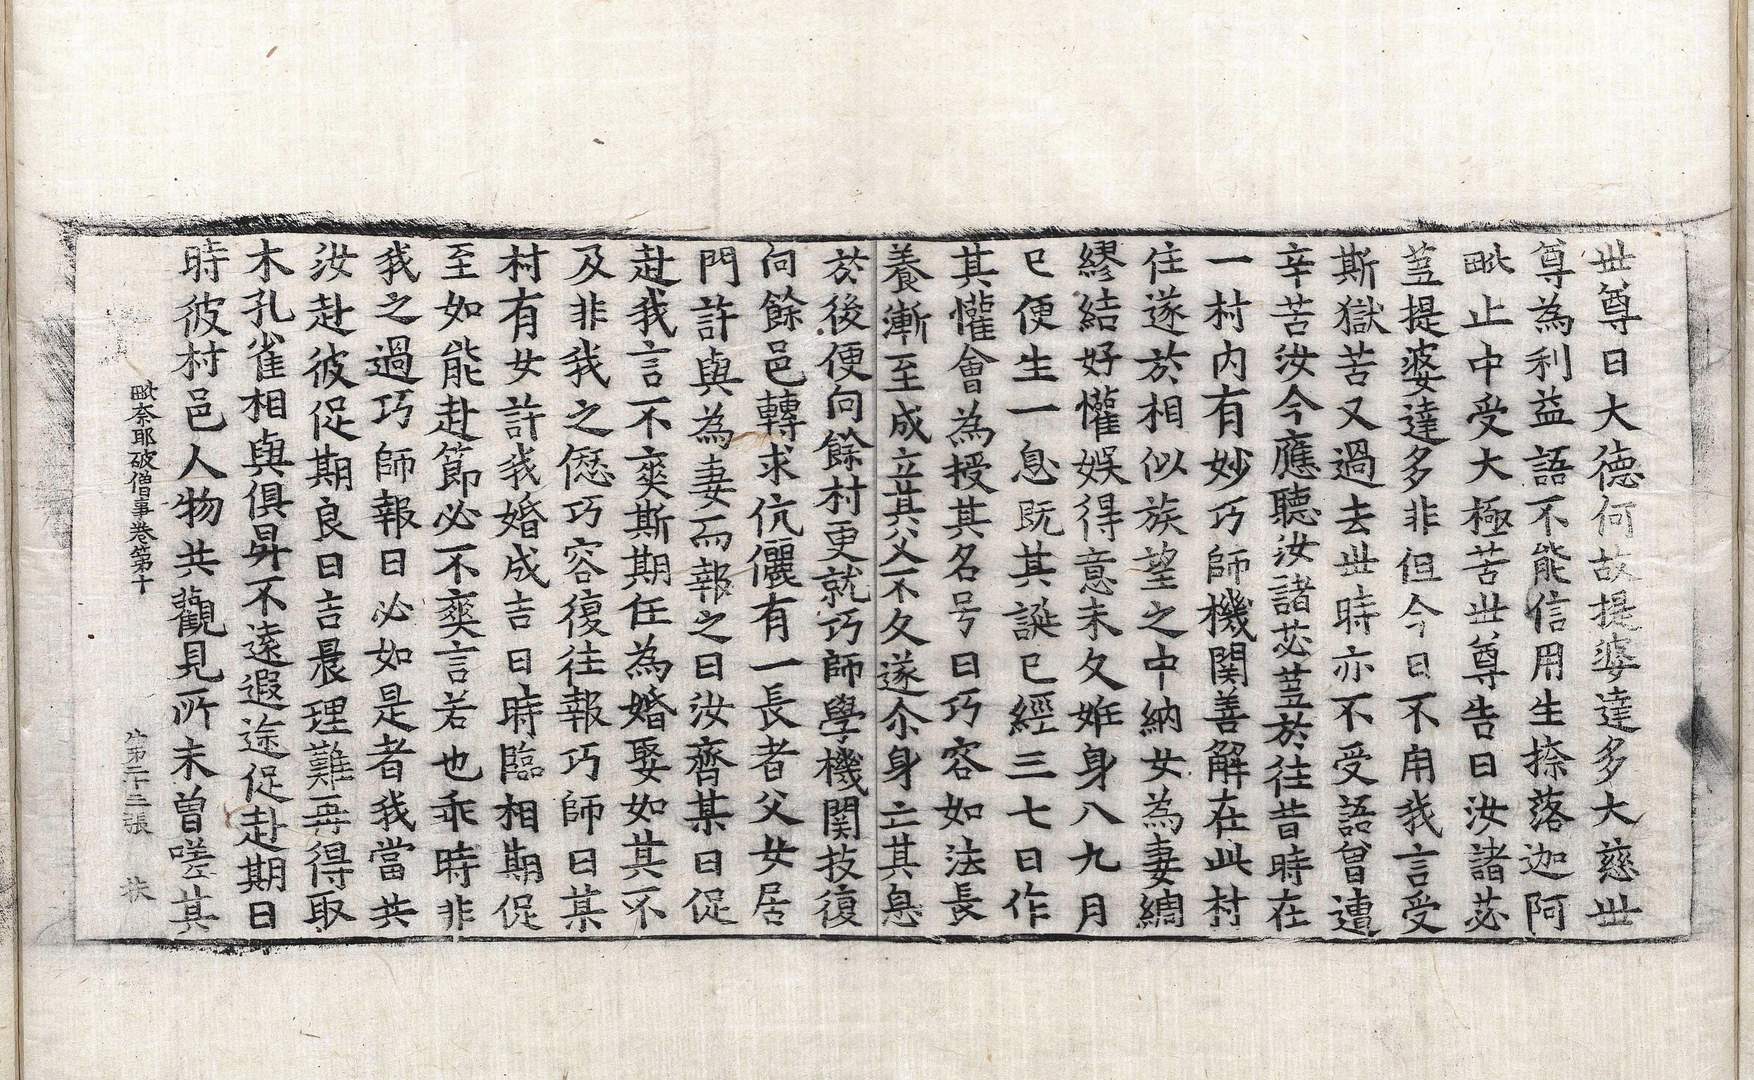 世尊曰大德何故提婆達多大慈世
尊為利益語不能信用生捺落迦阿
毗止中受大極苦世尊告曰汝諸苾
蒭提婆達多非但今日不用我言受
斯獄苦又過去世時亦不受語曾遭
辛苦汝今應聽汝諸苾蒭於往昔時在
一村內有妙巧師機関善解在此村
住遂於相似族望之中納女為妻綢
繆結好懽娛得意未久姙身八九月
已便生一息既其誕已經三七日作
其懽會為授其名号曰巧容如法長
養漸至成立其父不久遂尒身亡其息
於後便向餘村更就巧師學機関技復
向餘邑轉求伉儷有一長者父女居
門許與為妻而報之曰汝齊某日促
赴我言不爽斯期任為婚娶如其不
及非我之愆巧容復往報巧師曰某
村有女許我婚成吉日時臨相期促
至如能赴節必不爽言若也乖時非
我之過巧師報曰必如是者我當共
汝赴彼促期良日吉晨理難再得取
木孔雀相與俱昇不遠遐途促赴期日
時彼村邑人物共觀見所未曾嗟其
毗奈耶破僧事卷第十 第二十三張 扶